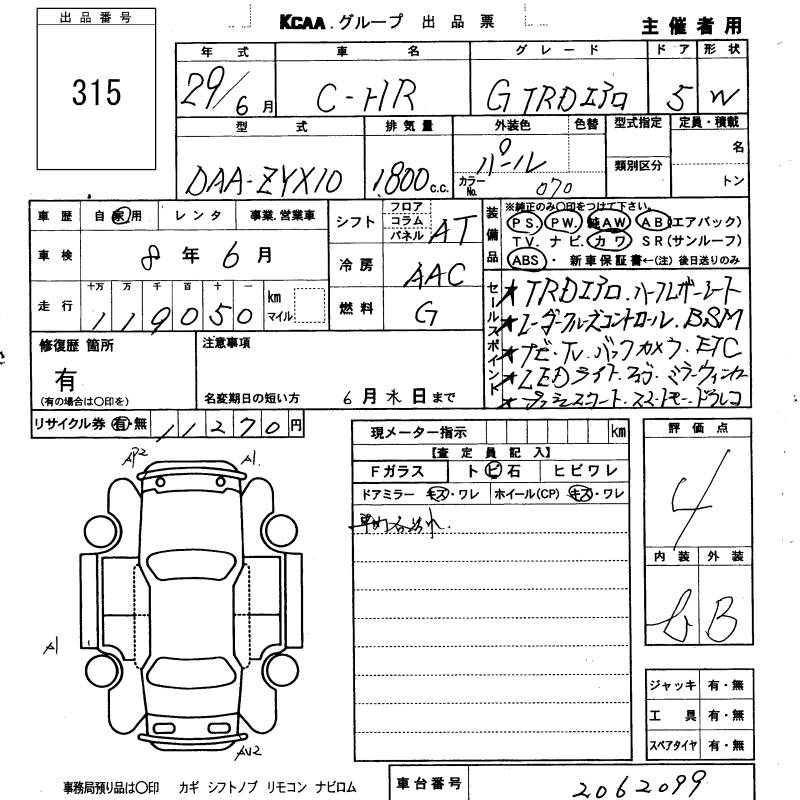 KCAA.グループ 出品票
主催者用
出品番号
315
年式 車名 グレード ドア 形状
29/6月 C-HR G TRDエアロ 5 W
型式 排気量 外装色 色替 型式指定 定員・積載
DAA-ZYX10 1800c.c. パール 名
類別区分
カラーNo. 070 トン
車歴 自家用 レンタ 事業.営業車
シフト フロア コラム パネル AT
車検 8年6月
冷房 AAC
走行 十万 万 千 百 十 一
119050 km マイル
燃料 G
装備品 ※純正のみ〇印をつけて下さい。
PS. PW. 純AW AB(エアバック)
TV. ナビ. カワ SR(サンルーフ)
ABS・ 新車保証書←(注)後日送りのみ
セールスポイント
★TRDエアロ.ハーフレザーシート
★レーダークルーズコントロール.BSM
★ナビ.TV.バックカメラ.ETC
★LEDライト.フォグ.ミラーウィンカー
★プッシュスタート.スマートキー.ドラレコ
修復歴 箇所
有
(有の場合は〇印を)
注意事項
名変期日の短い方 6月末日まで
リサイクル券 有・無 11270円
現メーター指示 km
【査定員記入】
Fガラス トビ石 ヒビワレ
ドアミラー キズ・ワレ ホイール(CP) キズ・ワレ
評価点
4
内装 外装
B
AP2
A1
A1
AU2
ジャッキ 有・無
工具 有・無
スペアタイヤ 有・無
事務局預り品は〇印 カギ シフトノブ リモコン ナビロム
車台番号 2062099